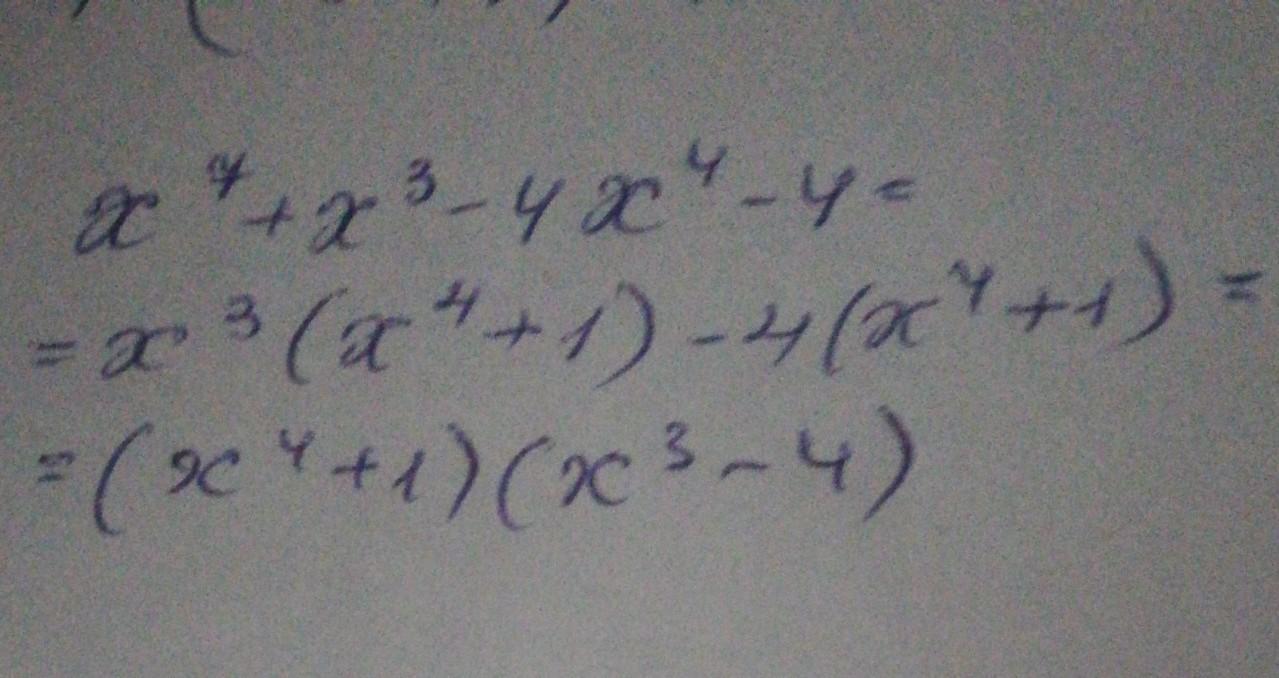 x⁷ + x³ - 4x⁴ - 4 =
= x³(x⁴ + 1) - 4(x⁴ + 1) =
= (x⁴ + 1)(x³ - 4)